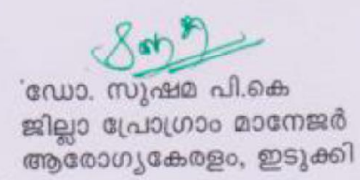 ഡോ. സുഷമ പി.കെ
ജില്ലാ പ്രോഗ്രാം മാനേജർ
ആരോഗ്യകേരളം, ഇടുക്കി